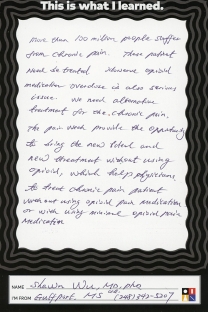 This is what I learned.
More than 100 million people suffer
from chronic pain. These patient
need be treated. However opioid
medication overdose is also serious
issue. We need alternative
treatment for the chronic pain.
The pain week provide the opportunity
to bring the new idea and
new treatment without using
opioid, which help physicians
to treat chronic pain patient
without using opioid pain medication
or with using minimal opioid pain
medication
NAME Shawn Wu, MD, PhD
I'M FROM Gulfport, MS